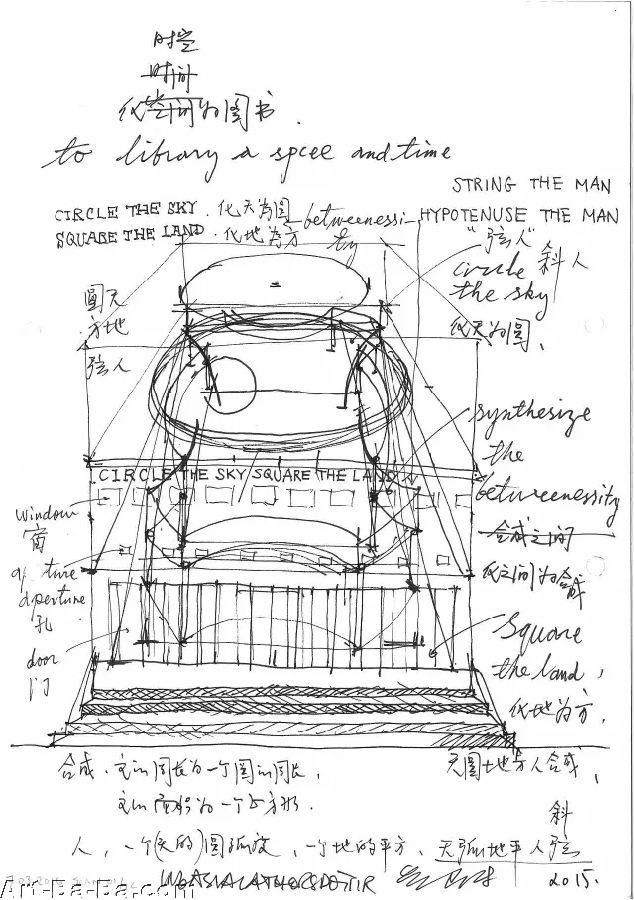 时空
时间
化空间为图书.
to library a spcee and time
STRING THE MAN
CIRCLE THE SKY. 化天为圆
betweenessi-
HYPOTENUSE THE MAN
SQUARE THE LAND. 化地为方
ty
"弦人"
圆天
方地
弦人
circle 斜人
the sky
化天为圆、
synthesize
the
betweenessity
合成之间
化之间为合成
CIRCLE THE SKY SQUARE THE LAND
window
窗
aperture
孔
door
门
Square
the land,
化地为方.
合成.
为一个圆的周长,
为一个方形.
天圆地方人合成,
斜
人, 一个(天的)圆弧度, 一个地的平方, 天弧地平人弦
2015.
Art-Ba-Ba.com